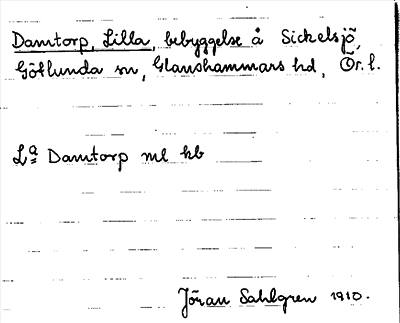 Damtorp, Lilla, bebyggelse å Sickelsjö,
Götlunda sn, Glanshammars hd, Ör. l.
La Damtorp ml kb
Jöran Sahlgren 1910.